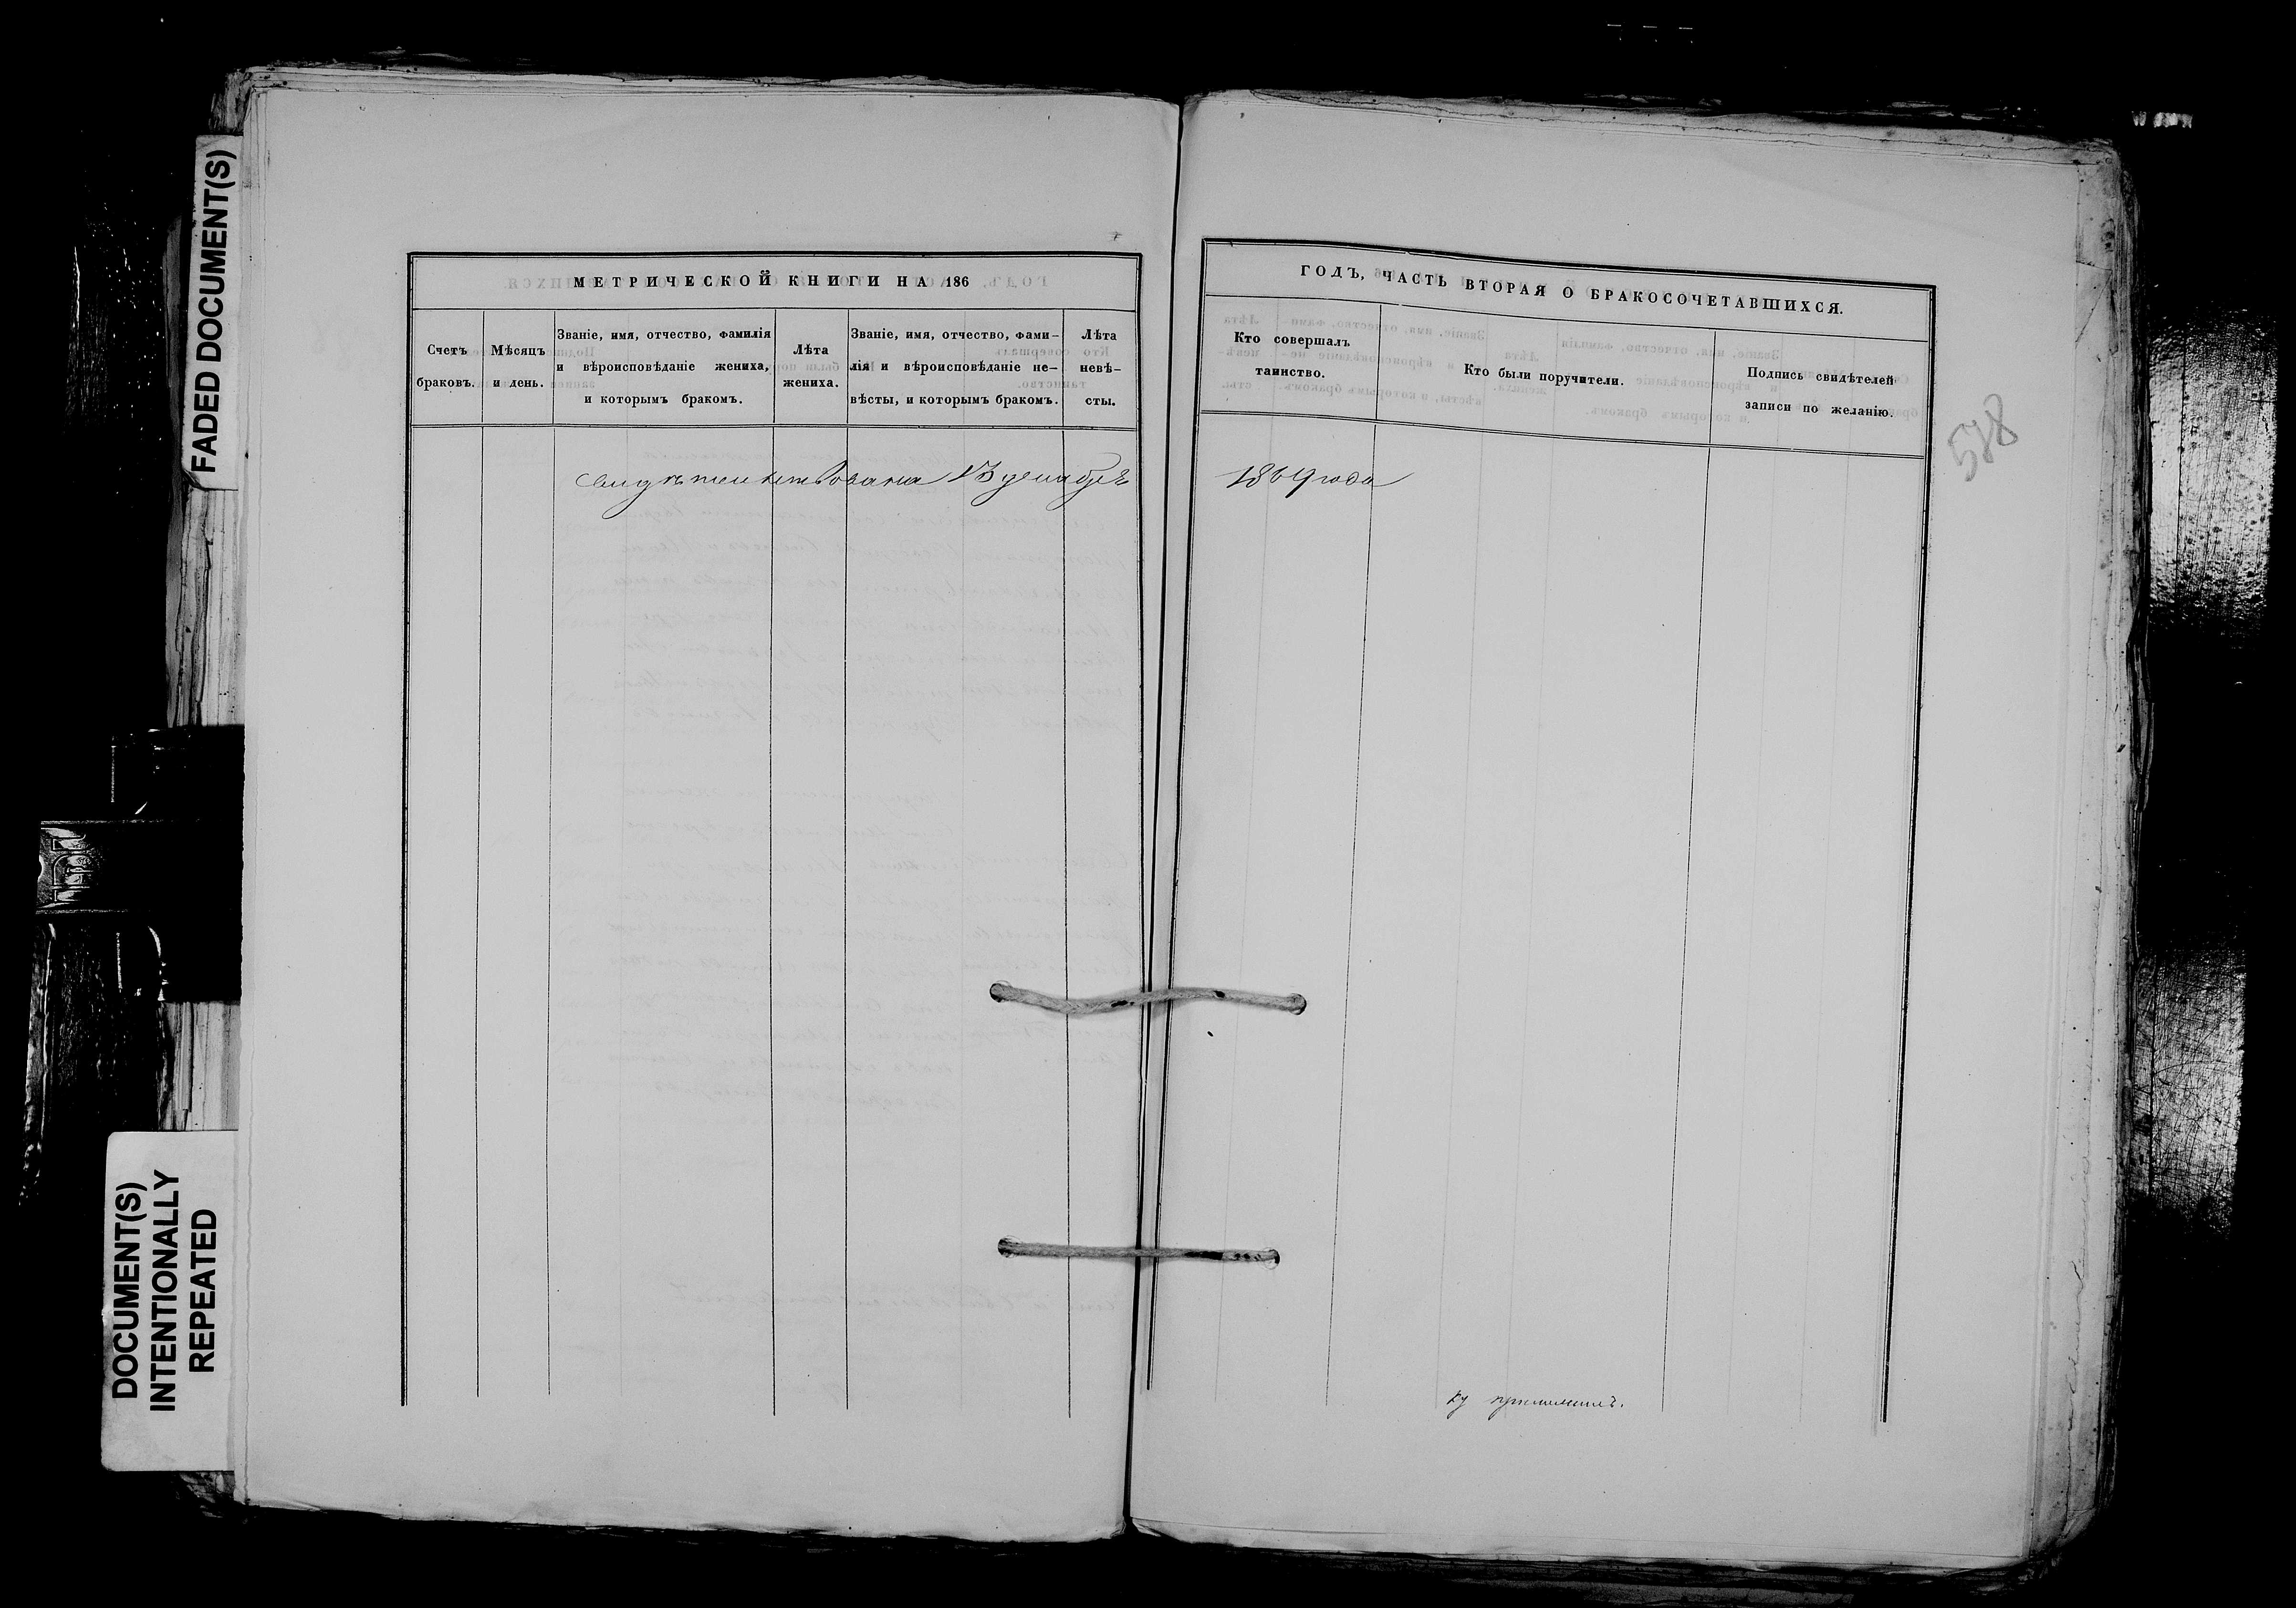 FADED DOCUMENT(S)
DOCUMENT(S)
INTENTIONALLY
REPEATED
МЕТРИЧЕСКОЙ КНИГИ НА 186
Счетъ
браковъ.
Мѣсяцъ
и день.
Званіе, имя, отчество, фамилія
и вѣроисповѣданіе жениха,
и которымъ бракомъ.
Лѣта
жениха.
Званіе, имя, отчество, фами-
лія и вѣроисповѣданіе не-
вѣсты, и которымъ бракомъ.
Лѣта
невѣ-
сты.
свидѣтельствована 13 декабря
ГОДЪ, ЧАСТЬ ВТОРАЯ О БРАКОСОЧЕТАВШИХСЯ.
Кто совершалъ
таинство.
Кто были поручители.
Подпись свидѣтелей
записи по желанію.
1869 года
578